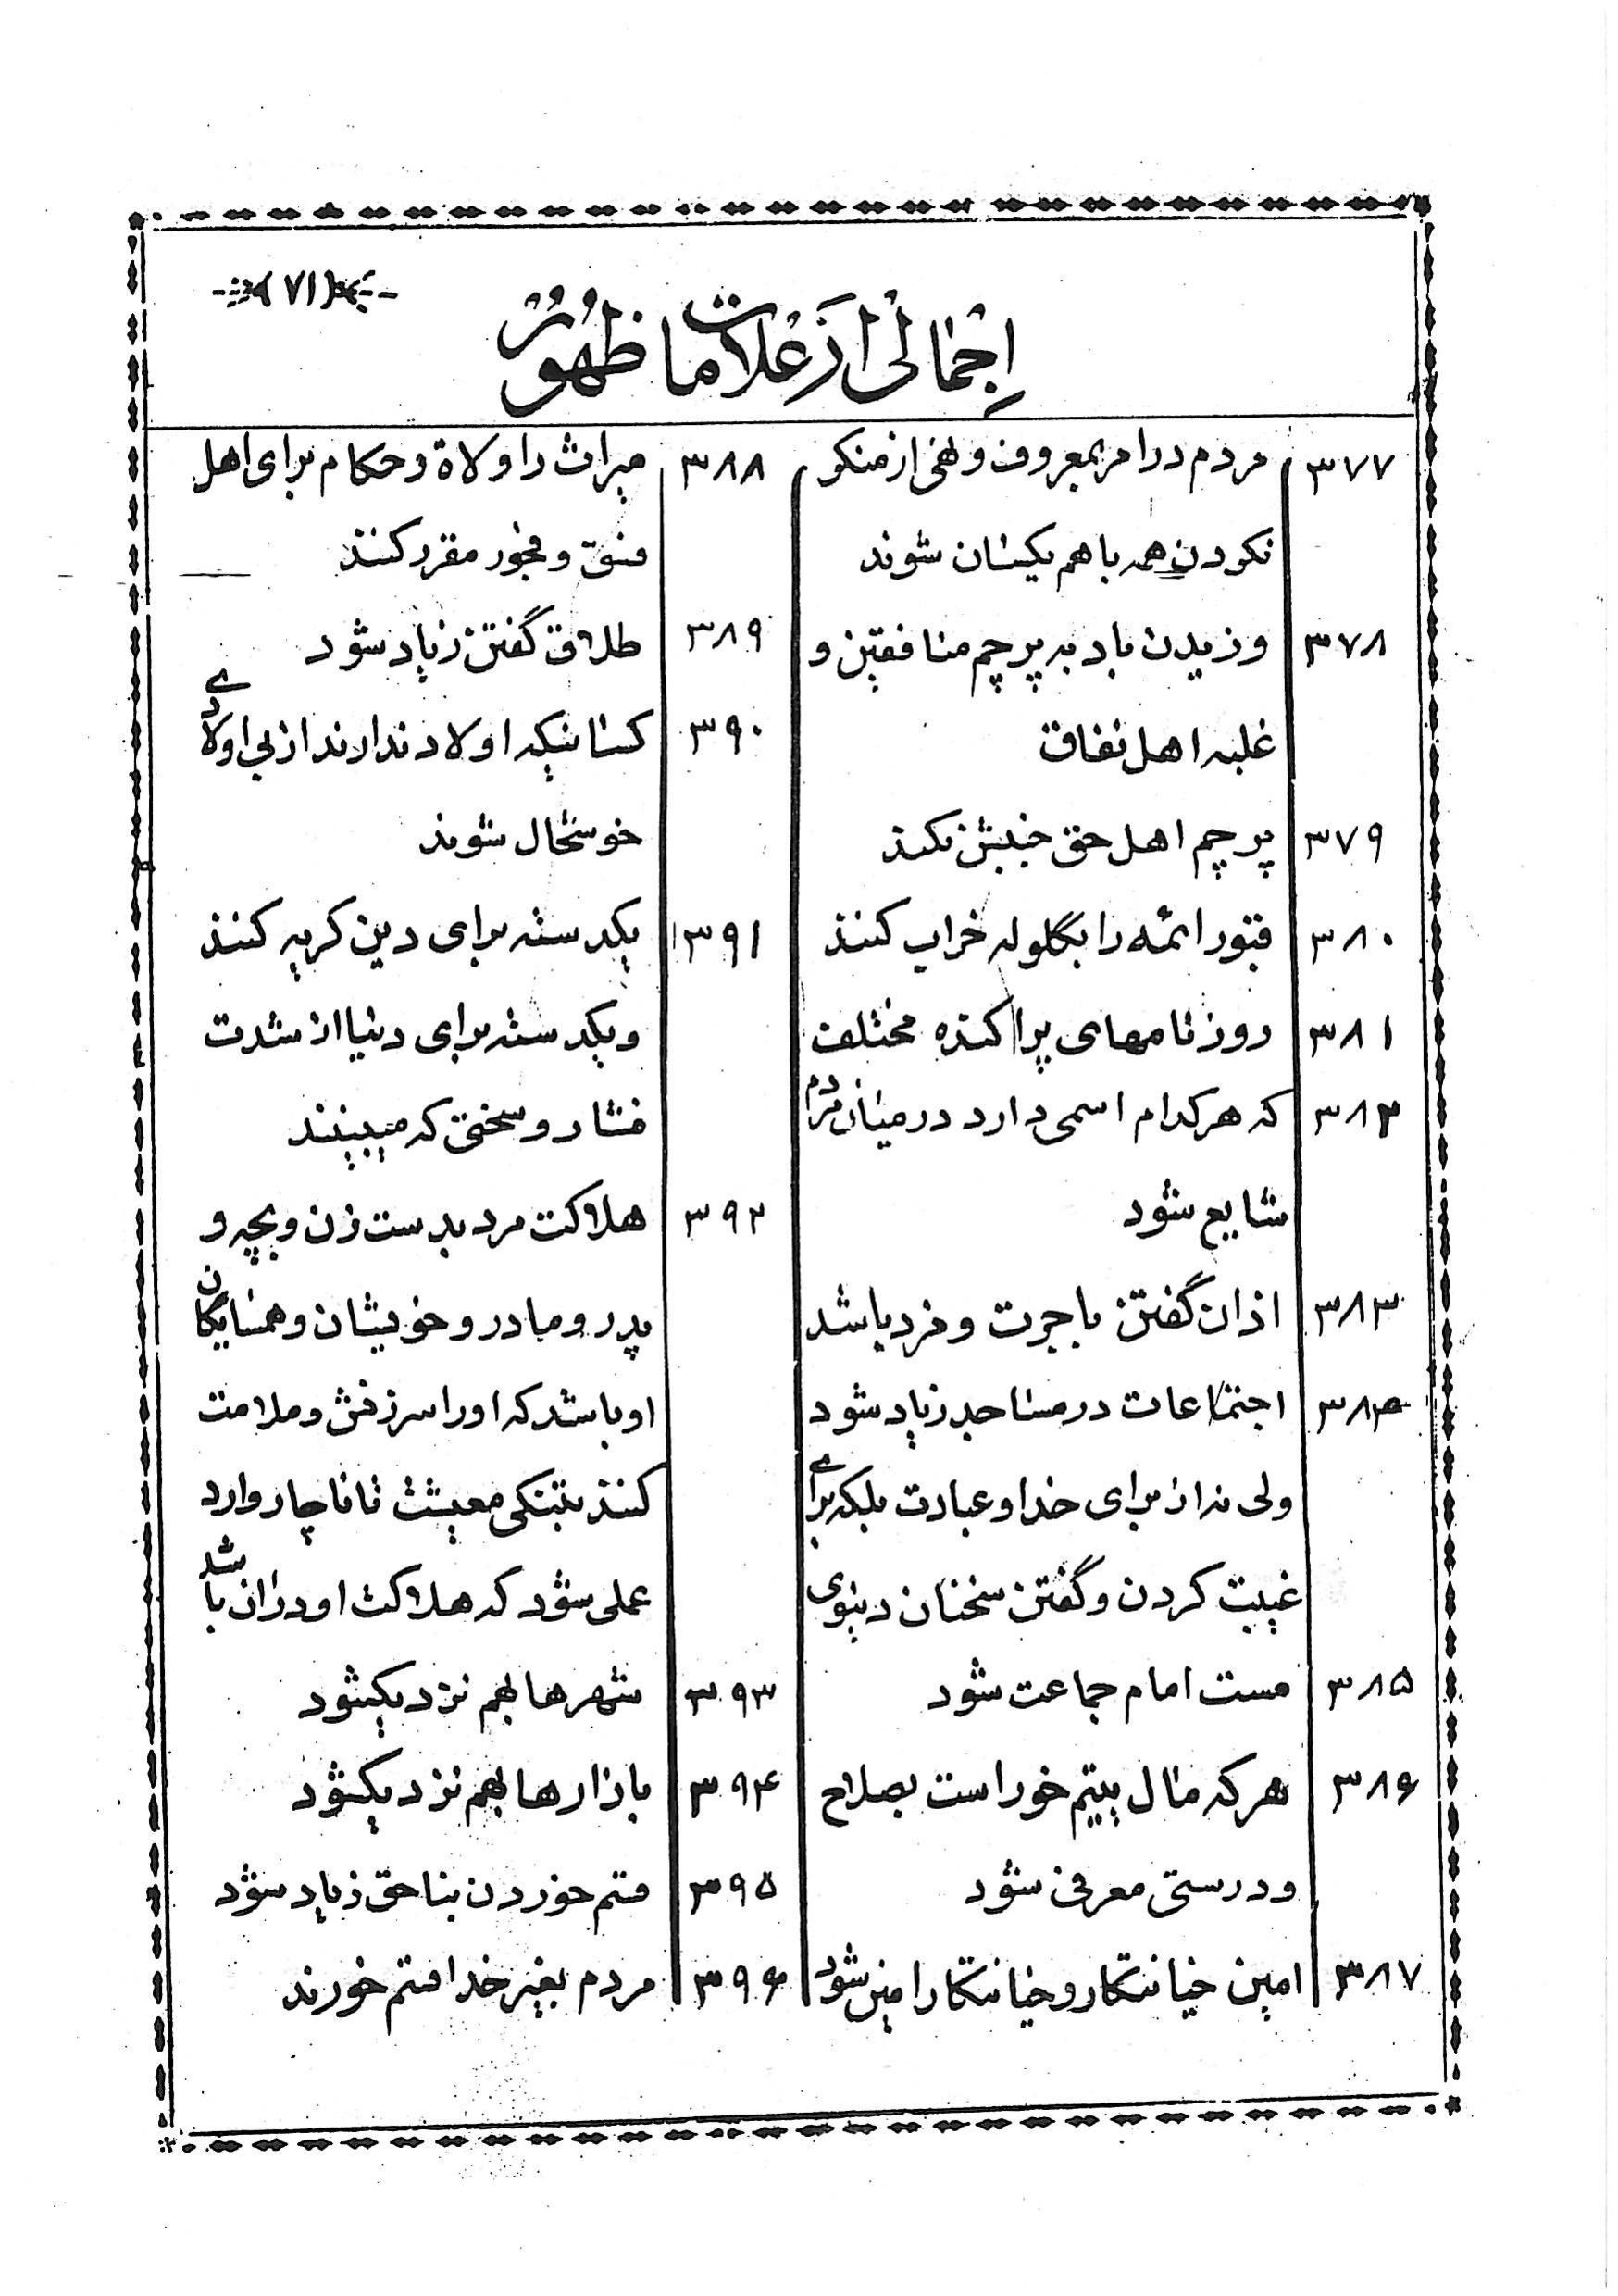 (۷۱)
اِجْمٰالی اَزْ عَلامات ظُهُور
۳۷۷ مردم در امر بمعروف و نهی از منکر
نکردن همه با هم یکسان شوند
۳۷۸ وزیدن باد به پرچم منافقین و
غلبه اهل نفاق
۳۷۹ پرچم اهل حق جنبش نکند
۳۸۰ قبور ائمه را بگلوله خراب کنند
۳۸۱ روزنامهای پراکنده مختلف
۳۸۲ که هر کدام اسمی دارد در میان مردم
شایع شود
۳۸۳ اذان گفتن باجرت و مزد باشد
۳۸۴ اجتماعات در مساجد زیاد شود
ولی نه از برای خدا و عبادت بلکه برای
غیبت کردن و گفتن سخنان دنیوی
۳۸۵ مست امام جماعت شود
۳۸۶ هر که مال یتیم خور است بصلاح
و درستی معرفی شود
۳۸۷ امین خیانتکار و خیانتکار امین شود
۳۸۸ میراث را ولاة و حکام برای اهل
فسق و فجور مقرر کنند
۳۸۹ طلاق گفتن زیاد شود
۳۹۰ کسانیکه اولاد ندارند از بی اولادی
خوشحال شوند
۳۹۱ یکدسته برای دین گریه کنند
و یکدسته برای دنیا از شدت
فشار و سختی که میبینند
۳۹۲ هلاکت مرد بدست زن و بچه و
پدر و مادر و خویشان و همسایگان
او باشد که او را سرزنش و ملامت
کنند بتنگی معیشت تا ناچار وارد
عملی شود که هلاکت او در ان باشد
۳۹۳ شهرها بهم نزدیکشود
۳۹۴ بازارها بهم نزدیکشود
۳۹۵ قسم خوردن بناحق زیاد شود
۳۹۶ مردم بغیر خدا قسم خورند